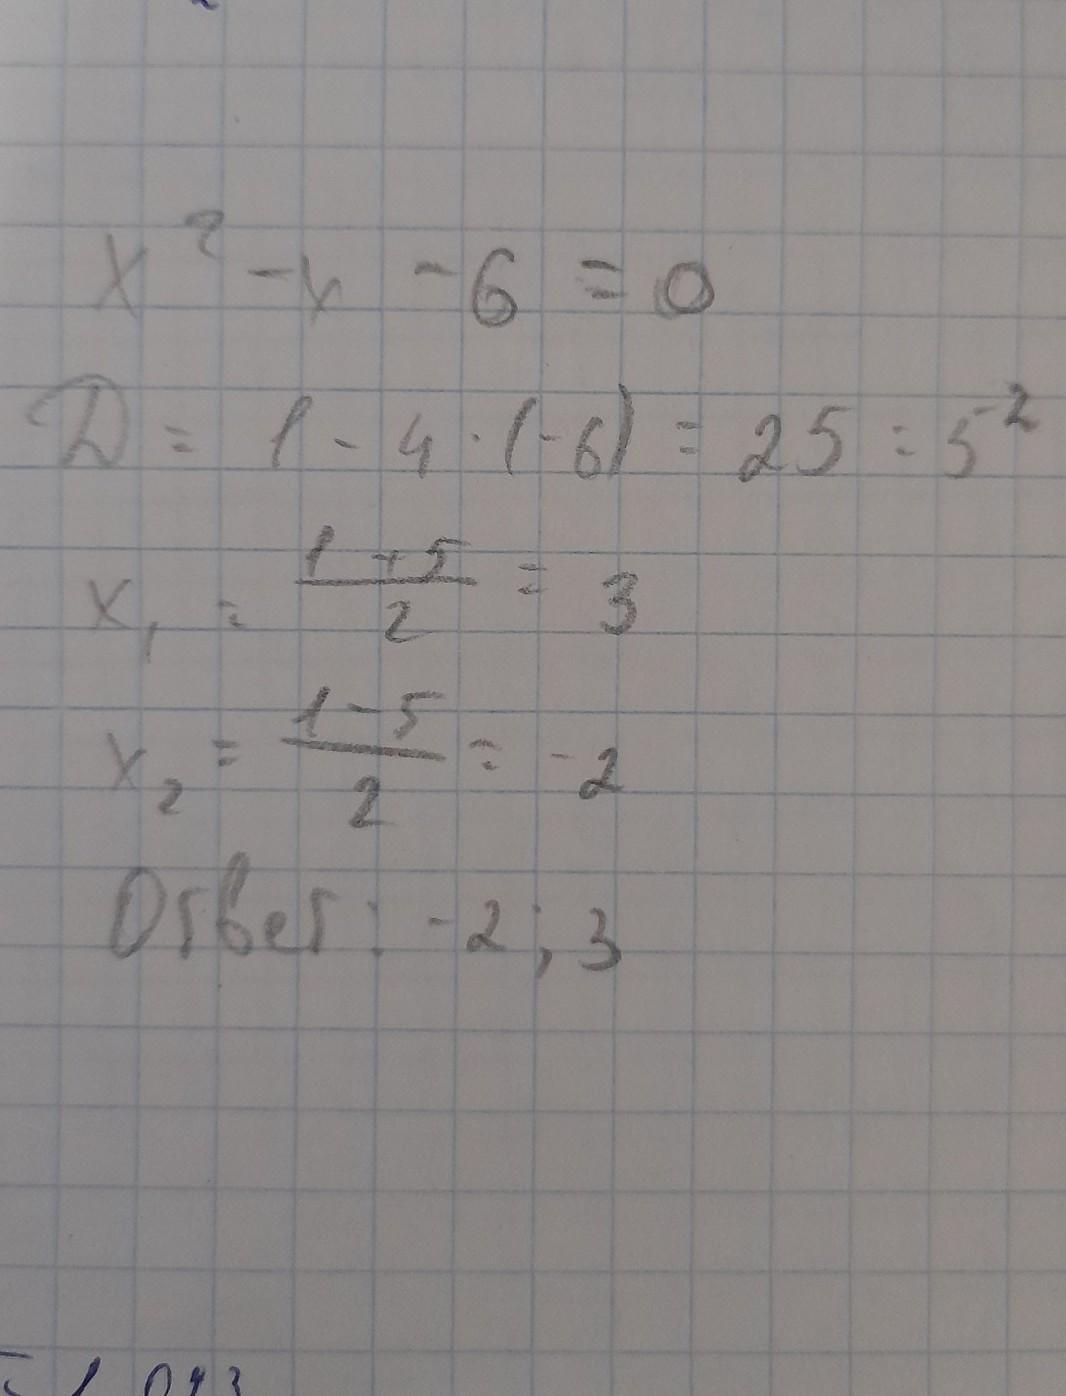 x² - x - 6 = 0
D = 1 - 4 · (-6) = 25 = 5²
x₁ = (1 + 5)/2 = 3
x₂ = (1 - 5)/2 = -2
Ответ: -2; 3